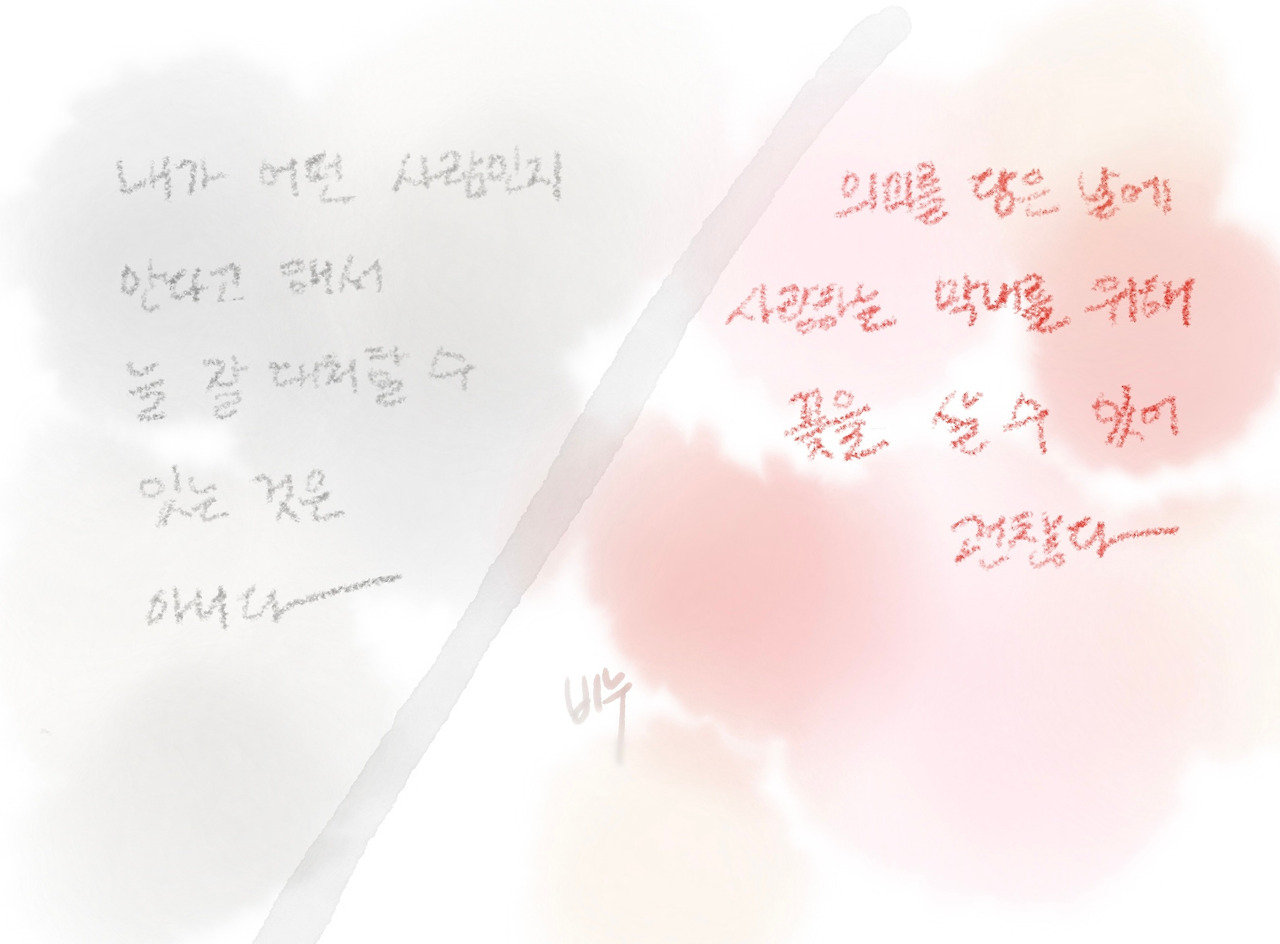 내가 어떤 사람인지
안다고 해서
늘 잘 대처할 수
있는 것은
아니다
의미를 담은 날에
사랑하는 막내를 위해
꽃을 살 수 있어
괜찮다
비누